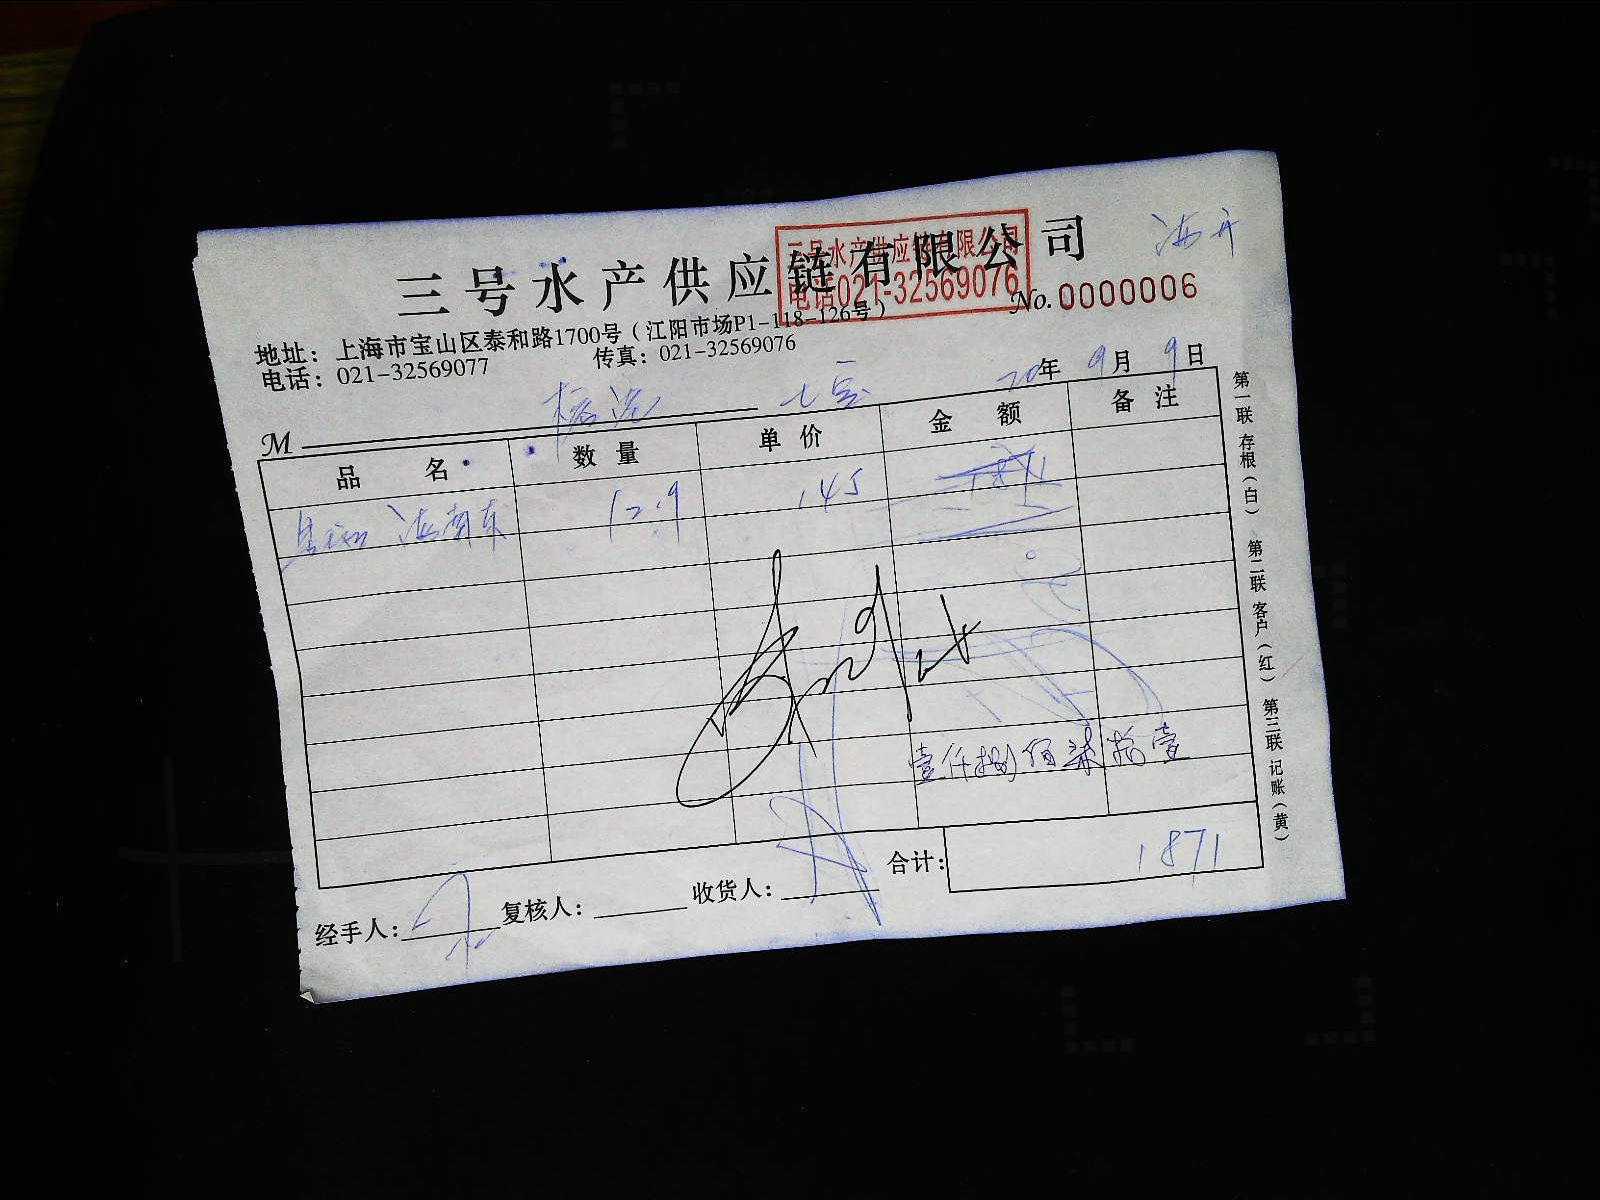 三号水产供应链有限公司
三号水产供应链有限公司
电话021-32569076
No. 0000006
地址：上海市宝山区泰和路1700号（江阳市场P1-118-126号）
电话：021-32569077 传真：021-32569076
20年 9月 9日
M
品名 数量 单价 金额 备注
海南东 12.9 145
壹仟捌佰柒拾壹
合计： 1871
经手人： 复核人： 收货人：
第一联 存根（白） 第二联 客户（红） 第三联 记账（黄）